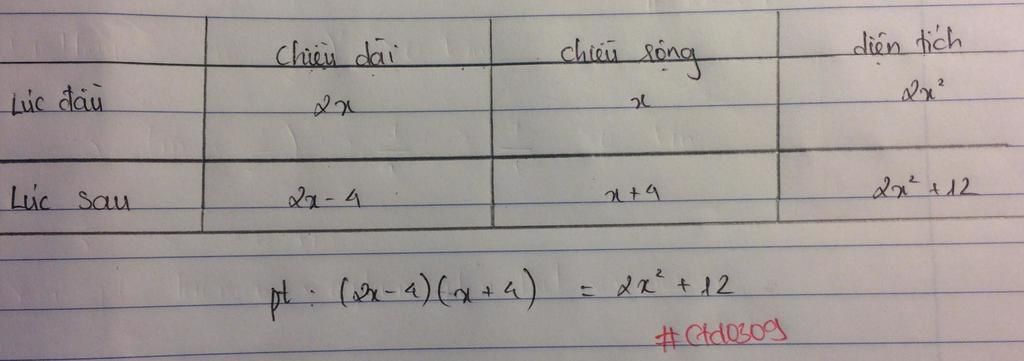 chiều dài chiều rộng diện tích
Lúc đầu 2x x 2x²
Lúc sau 2x-4 x+4 2x²+12
pt: (2x-4)(x+4) = 2x²+12
#Ctd0309